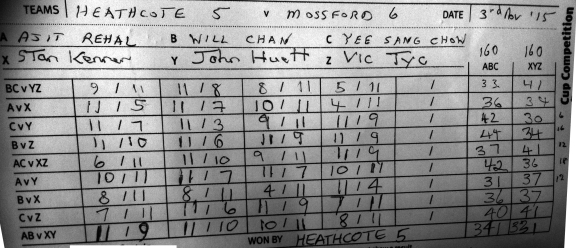 TEAMS HEATHCOTE 5 V MOSSFORD 6 DATE 3rd Nov '15
A AJIT REHAL B WILL CHAN C YEE SANG CHOW 160 160
X Stan Kenner Y John Huett Z Vic Tyc ABC XYZ Cup Competition
BC v YZ 9 / 11 11 / 8 8 / 11 5 / 11 / 33 41
A v X 11 / 5 11 / 7 10 / 11 4 / 11 / 36 34
C v Y 11 / 7 11 / 3 9 / 11 11 / 9 / 42 30
B v Z 11 / 10 11 / 6 11 / 9 11 / 9 / 44 34
AC v XZ 6 / 11 11 / 10 9 / 11 11 / 9 / 37 41
A v Y 10 / 11 11 / 7 11 / 7 10 / 11 / 42 36
B v X 8 / 11 8 / 11 4 / 11 11 / 4 / 31 37
C v Z 7 / 11 11 / 6 11 / 9 7 / 11 / 36 37
AB v XY 11 / 9 11 / 10 10 / 11 8 / 11 / 40 41
WON BY HEATHCOTE 5 341 331